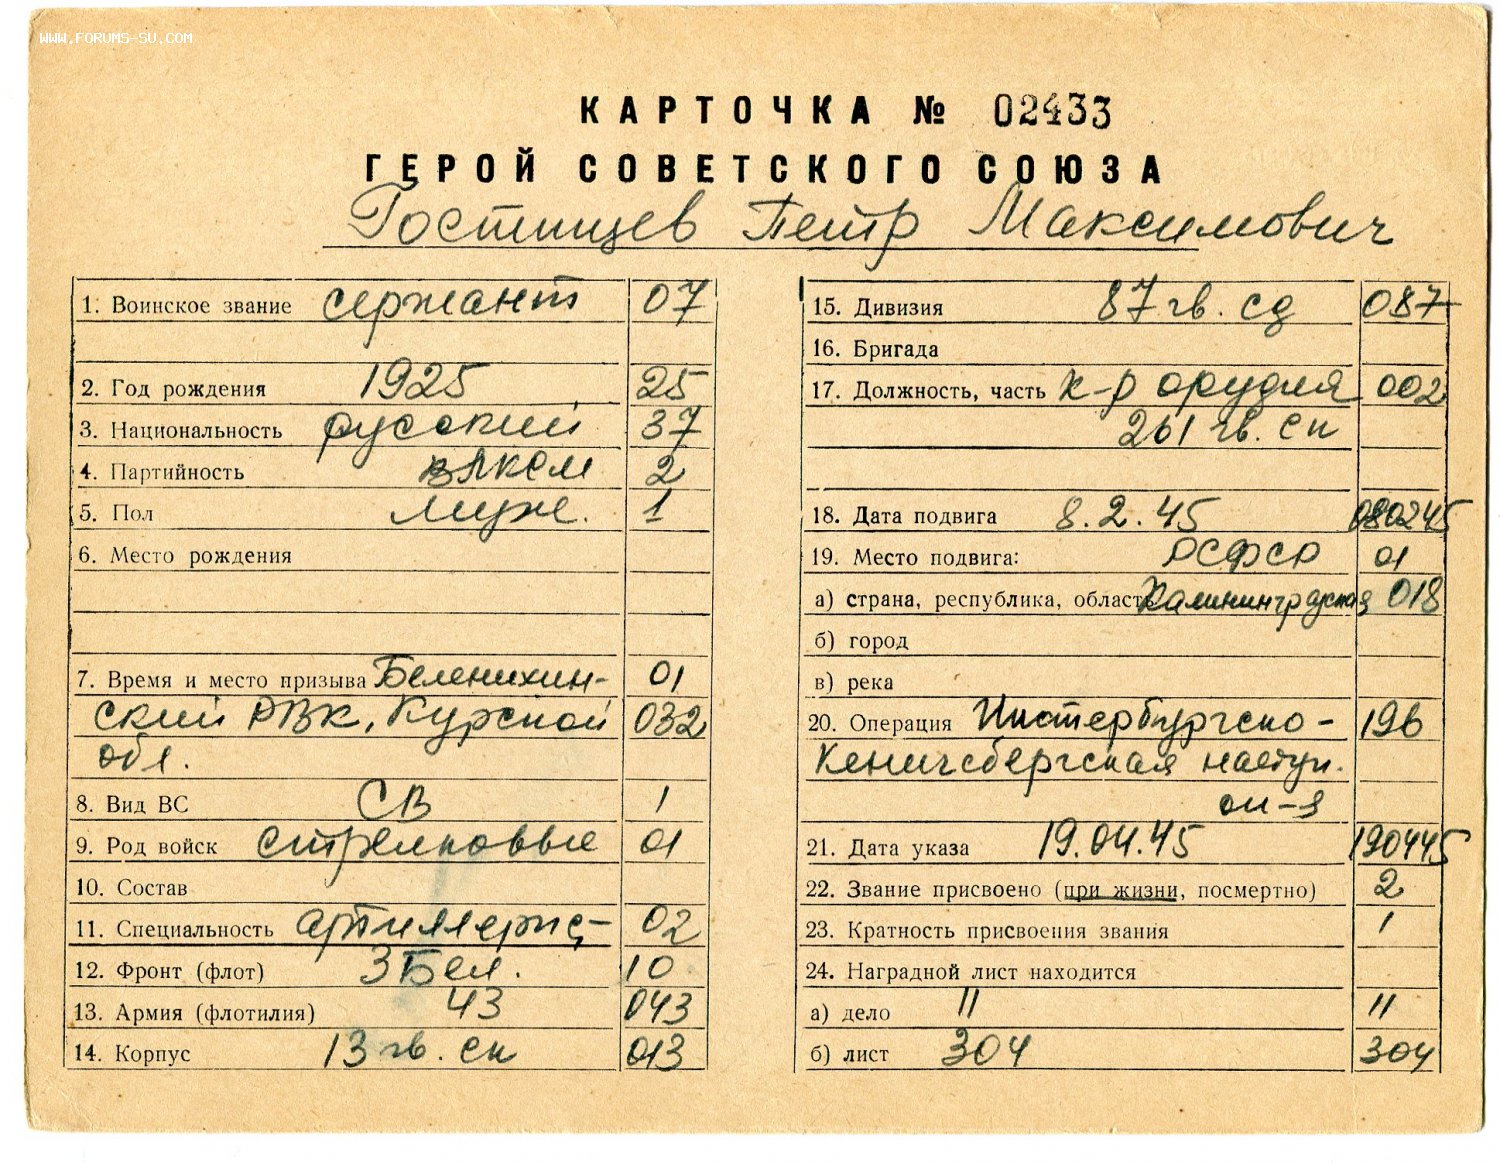 WWW.FORUMS-SU.COM
КАРТОЧКА № 02433
ГЕРОЙ СОВЕТСКОГО СОЮЗА
Гостищев Петр Максимович
1. Воинское звание сержант 07
2. Год рождения 1925 25
3. Национальность русский 37
4. Партийность ВЛКСМ 2
5. Пол муж. 1
6. Место рождения
7. Время и место призыва Беленихин- 01
ский РВК, Курской 032
обл.
8. Вид ВС СВ 1
9. Род войск стрелковые 01
10. Состав
11. Специальность артиллерис- 02
12. Фронт (флот) 3 Бел. 10
13. Армия (флотилия) 43 043
14. Корпус 13 гв. ск 013
15. Дивизия 87 гв. сд 087
16. Бригада
17. Должность, часть к-р орудия 002
261 гв. сп
18. Дата подвига 8.2.45 080245
19. Место подвига: РСФСР 01
а) страна, республика, область Калининградская 018
б) город
в) река
20. Операция Инстербургско- 196
Кенигсбергская наступ.
оп-я
21. Дата указа 19.04.45 190445
22. Звание присвоено (при жизни, посмертно) 2
23. Кратность присвоения звания 1
24. Наградной лист находится
а) дело 11 11
б) лист 304 304